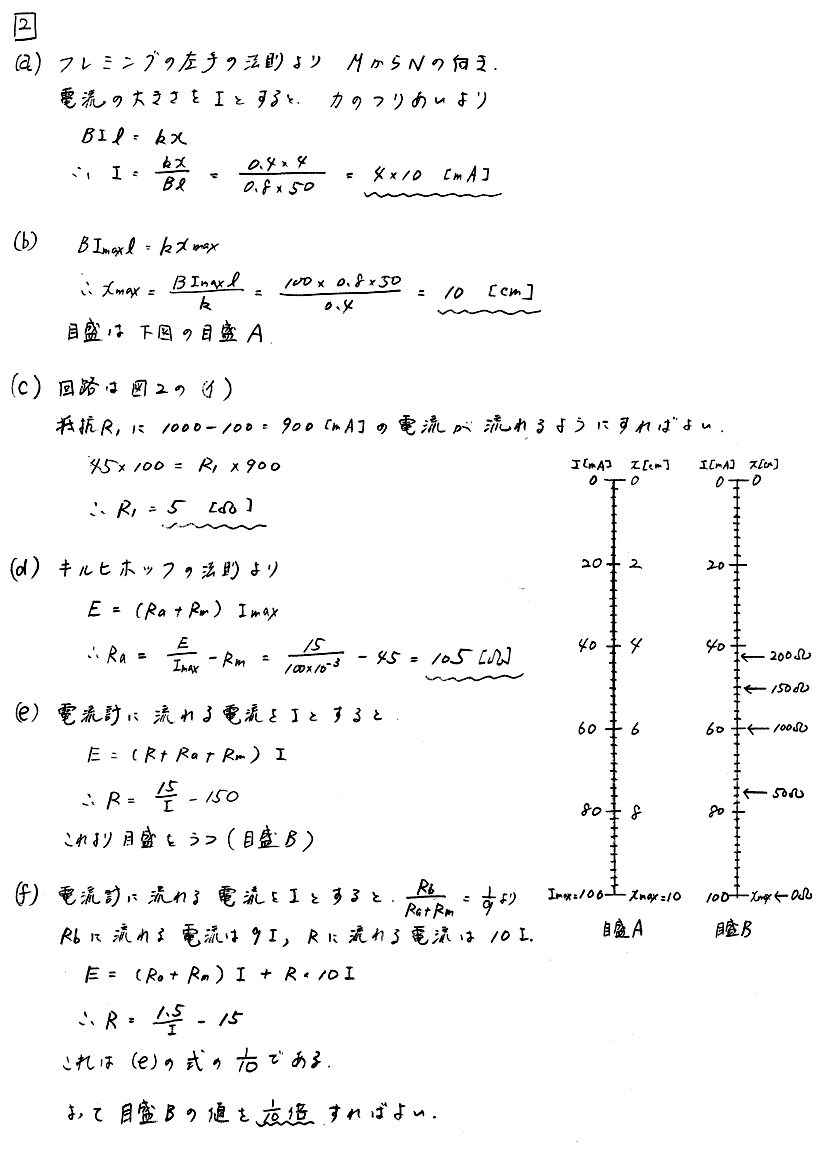 2
(a) フレミングの左手の法則より MからNの向き.
電流の大きさをIとすると. 力のつりあいより
BIl = kx
∴ I = kx/Bl = 0.4×4/0.8×50 = 4×10 [mA]
(b) BImaxl = kxmax
∴ xmax = BImaxl/k = 100×0.8×50/0.4 = 10 [cm]
目盛は下図の目盛A
(c) 回路は図2の(イ)
抵抗R1に 1000-100=900[mA]の電流が流れるようにすればよい.
45×100 = R1×900
∴ R1 = 5 [Ω]
(d) キルヒホッフの法則より
E = (Ra+Rm) Imax
∴ Ra = E/Imax - Rm = 15/100×10⁻³ - 45 = 105[Ω]
(e) 電流計に流れる電流をIとすると.
E = (R+Ra+Rm) I
∴ R = 15/I - 150
これより目盛をうつ(目盛B)
(f) 電流計に流れる電流をIとすると. Rb/Ra+Rm = 1/9より
Rbに流れる電流は9I, Rに流れる電流は10I.
E = (Ra+Rm) I + R・10I
∴ R = 1.5/I - 15
これは(e)の式の1/10である.
よって目盛Bの値を1/10倍すればよい.
I[mA] x[cm]
0 0
20 2
40 4
60 6
80 8
Imax=100 xmax=10
目盛A
I[mA] x[cm]
0 0
20
40
←200Ω
←150Ω
60 ←100Ω
←50Ω
80
100 xmax←0Ω
目盛B